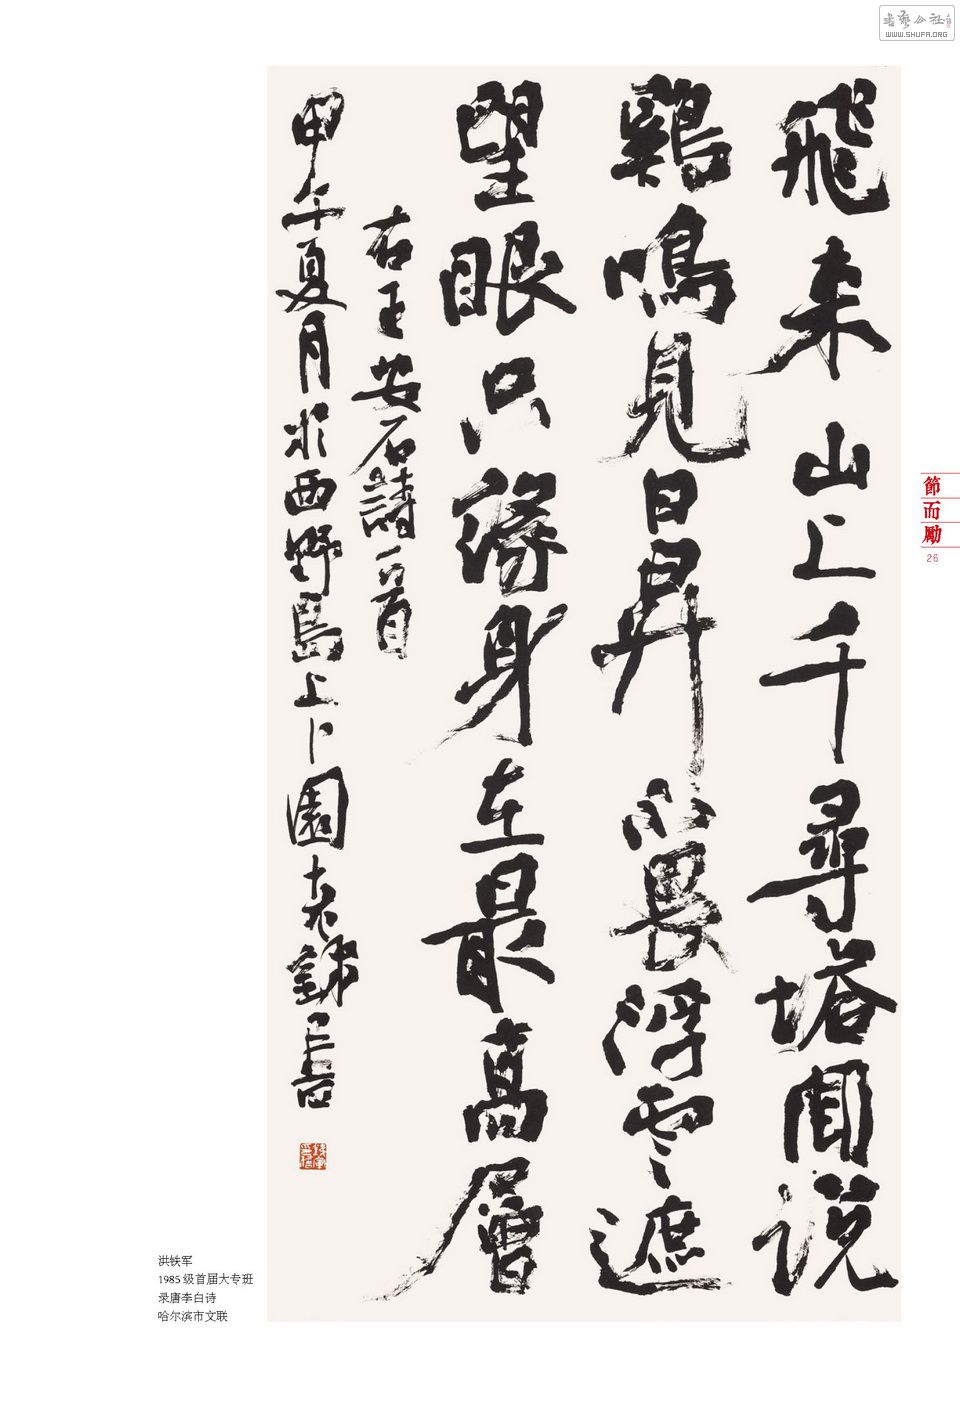 书艺公社
WWW.SHUFA.ORG
飛来山上千尋塔聞説
鷄鳴見日昇不畏浮雲遮
望眼只緣身在最高層
右王安石詩一首
甲午夏月於西野島上卜園 書
節而勵
26
洪铁军
1985 级首届大专班
录唐李白诗
哈尔滨市文联